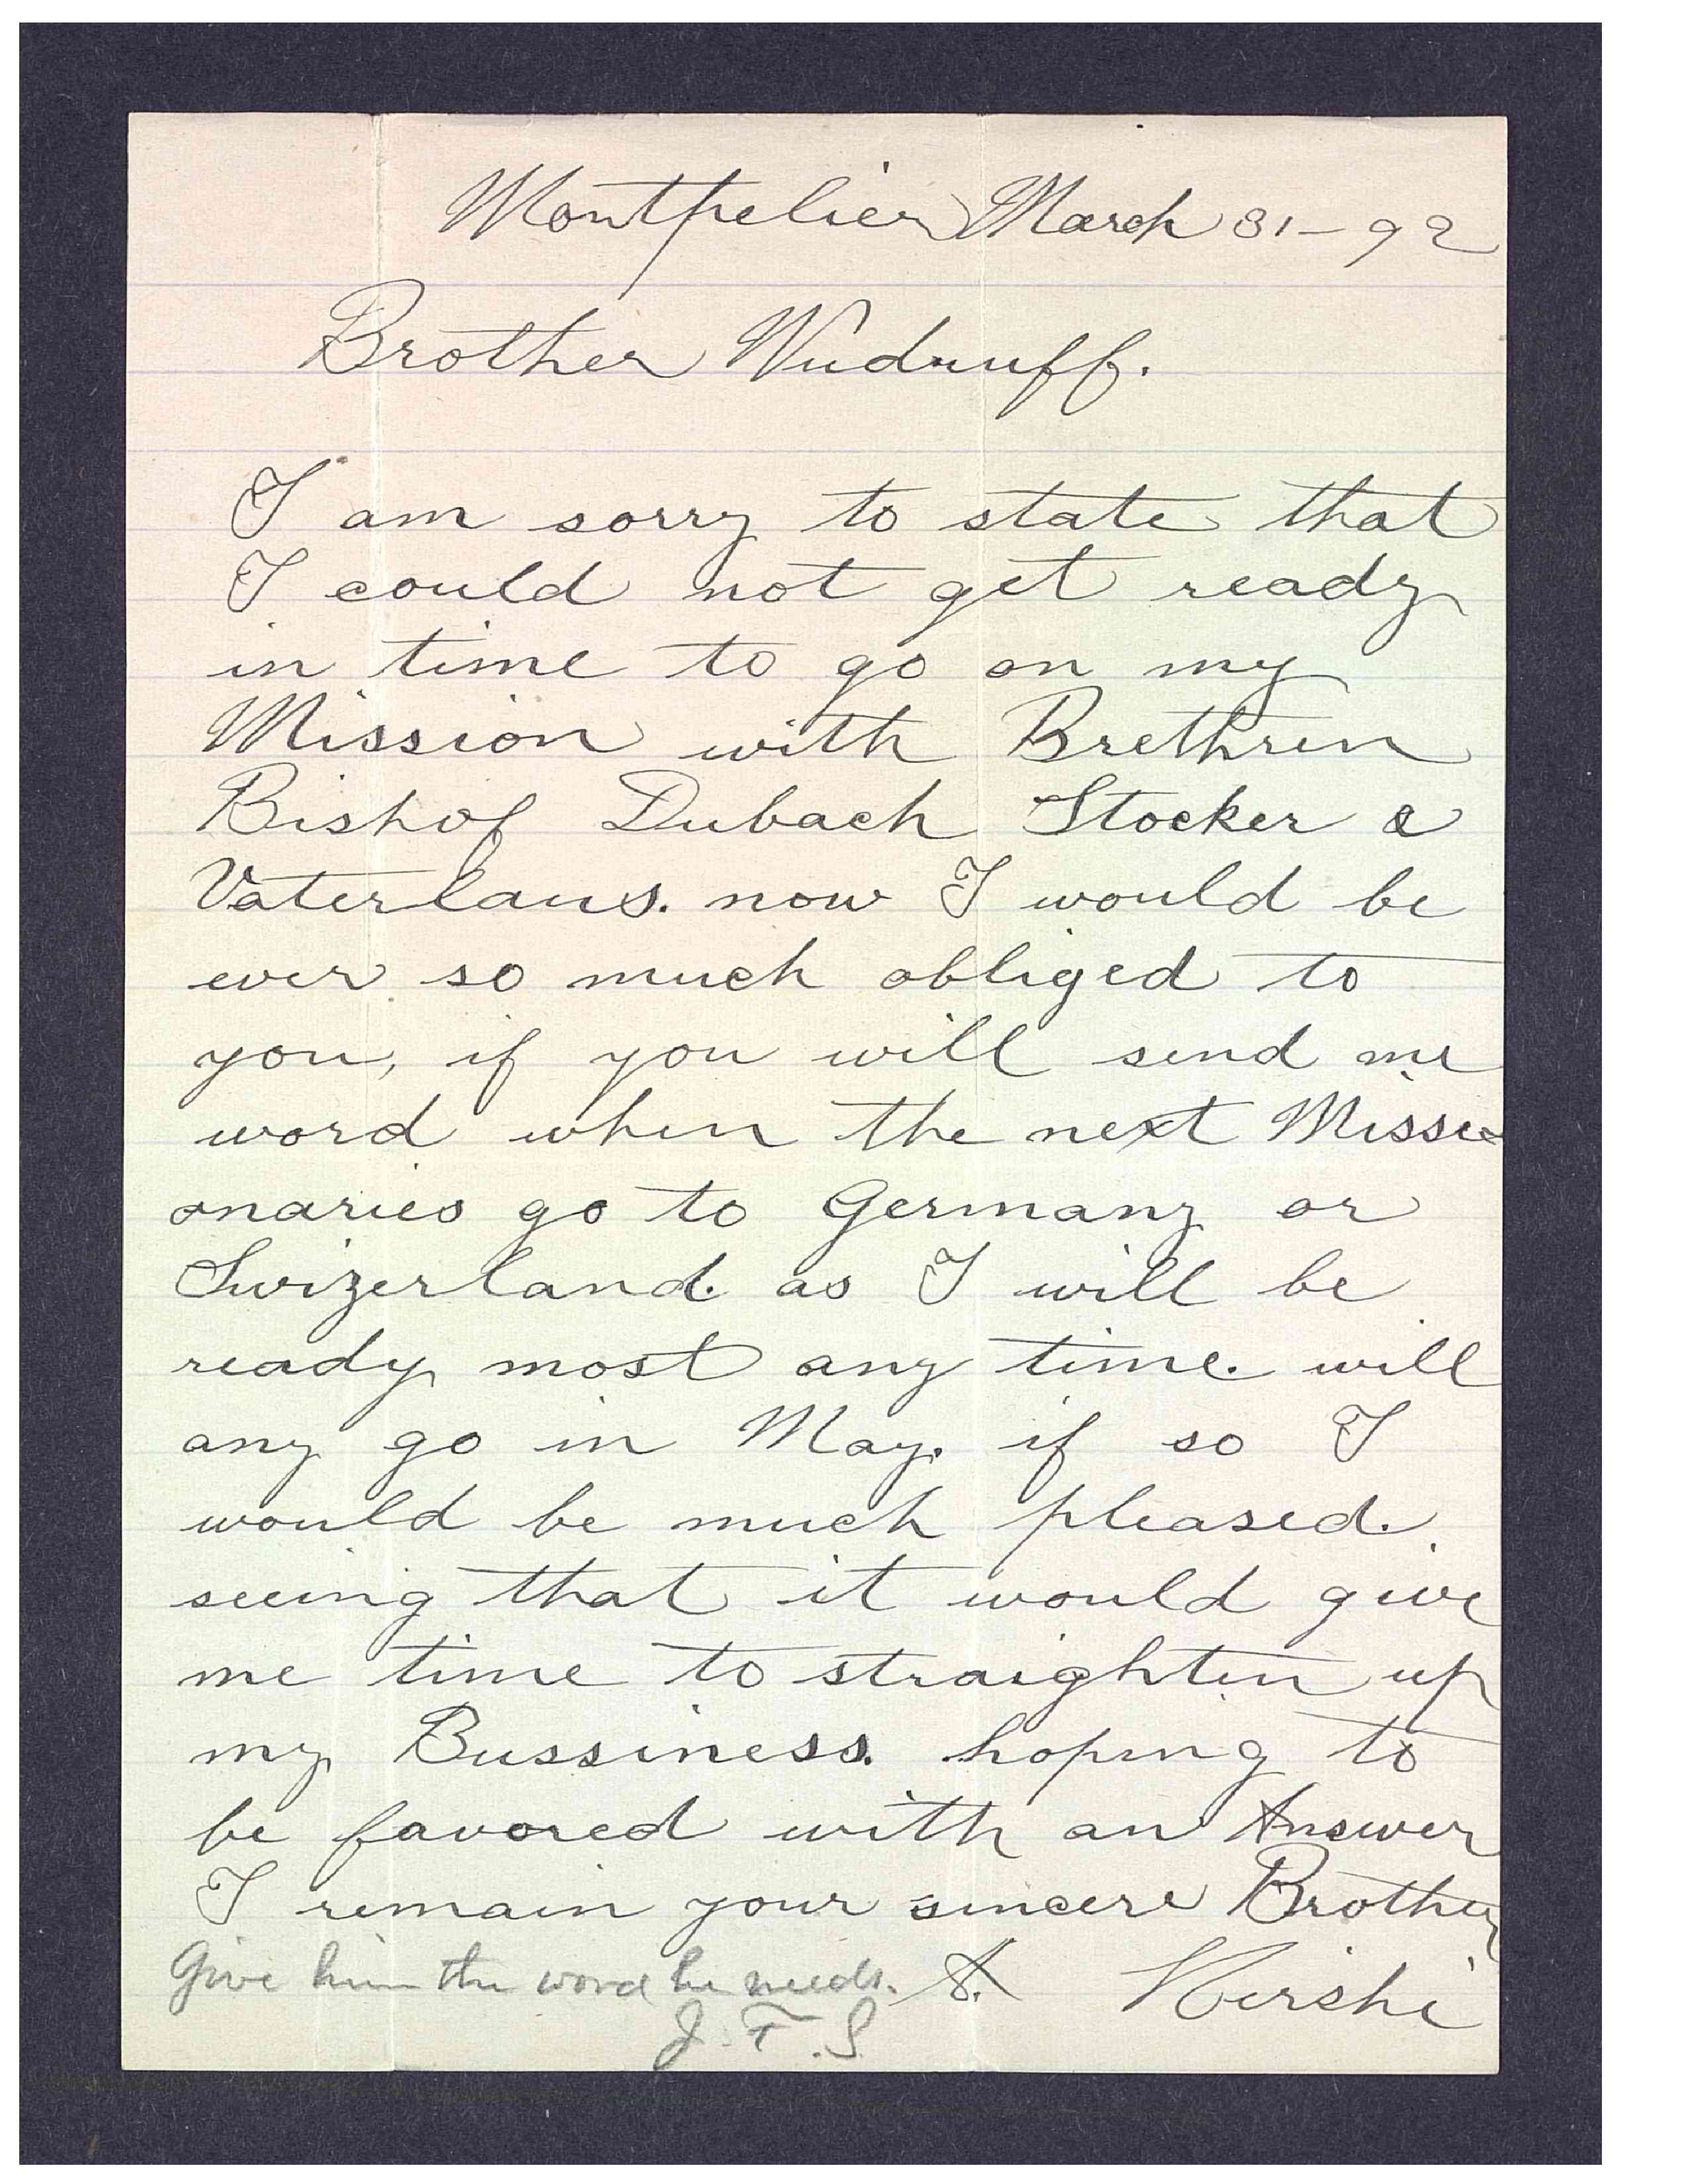 Montpelier March 31-92
Brother Wudruff.
I am sorry to state that
I could not get ready
in time to go on my
Mission with Brethren
Bishof Dubach Stocker &
Vaterlaus. now I would be
ever so much obliged to
you, if you will send me
word when the next Missi
onaries go to Germany or
Swizerland. as I will be
ready most any time. will
any go in May. if so I
would be much pleased.
seeing that it would give
me time to straighten up
my Bussiness. hoping to
be favored with an Answer
I remain your sincere Brother
A. Hirshi
Give him the word he needs.
J. F. S.